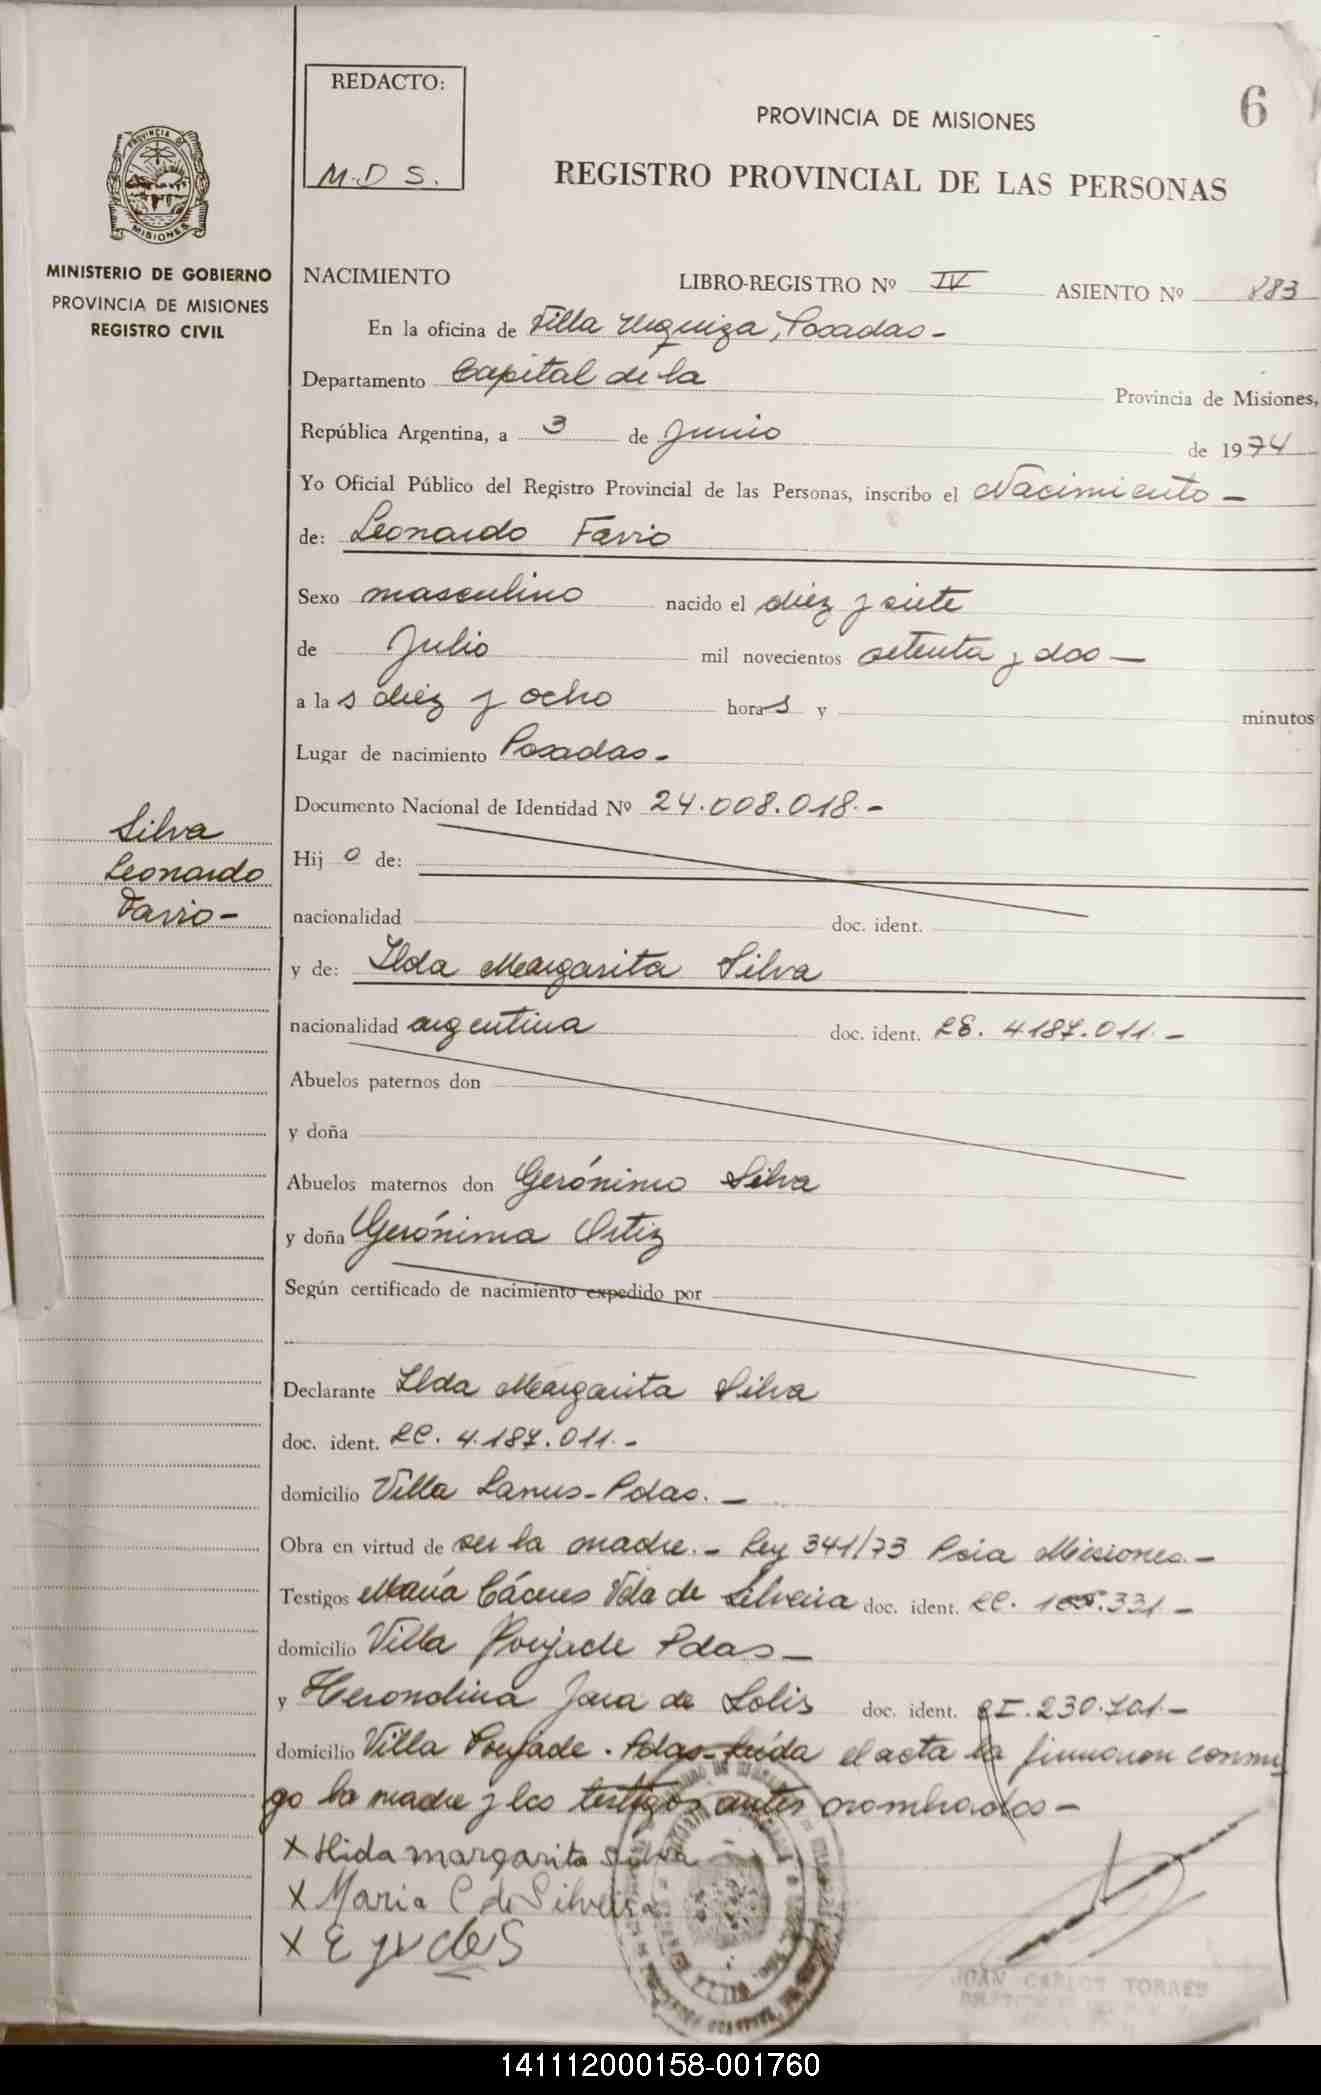 REDACTO:
M.D S.
6
PROVINCIA DE MISIONES
REGISTRO PROVINCIAL DE LAS PERSONAS
PROVINCIA DE
MISIONES
MINISTERIO DE GOBIERNO
PROVINCIA DE MISIONES
REGISTRO CIVIL
NACIMIENTO LIBRO-REGISTRO Nº IV ASIENTO Nº 883
En la oficina de Villa Urquiza, Posadas -
Departamento Capital de la Provincia de Misiones,
República Argentina, a 3 de Junio de 1974
Yo Oficial Público del Registro Provincial de las Personas, inscribo el Nacimiento -
de: Leonardo Favio
Sexo masculino nacido el diez y siete
de Julio mil novecientos setenta y dos -
a las diez y ocho horas y minutos
Lugar de nacimiento Posadas -
Documento Nacional de Identidad Nº 24.008.018. -
Silva
Leonardo
Favio -
Hijo de:
nacionalidad doc. ident.
y de: Ilda Margarita Silva
nacionalidad argentina doc. ident. LC. 4187.011. -
Abuelos paternos don
y doña
Abuelos maternos don Gerónimo Silva
y doña Gerónima Ortiz
Según certificado de nacimiento expedido por
Declarante Ilda Margarita Silva
doc. ident. LC. 4.187.011. -
domicilio Villa Lanus - Pdas. -
Obra en virtud de ser la madre. - Ley 341/73 Pcia Misiones. -
Testigos María Cáceres Vda de Silveira doc. ident. LC. .331 -
domicilio Villa Poujade Pdas -
y Herondina Jara de Solis doc. ident. CI. 230.701. -
domicilio Villa Poujade. Pdas - Leída el acta la firmaron conmi
go la madre y los testigos antes nombrados -
x Hida margarita Silva
x Maria C de Silveira
x E
JUAN CARLOS TORRES
141112000158-001760